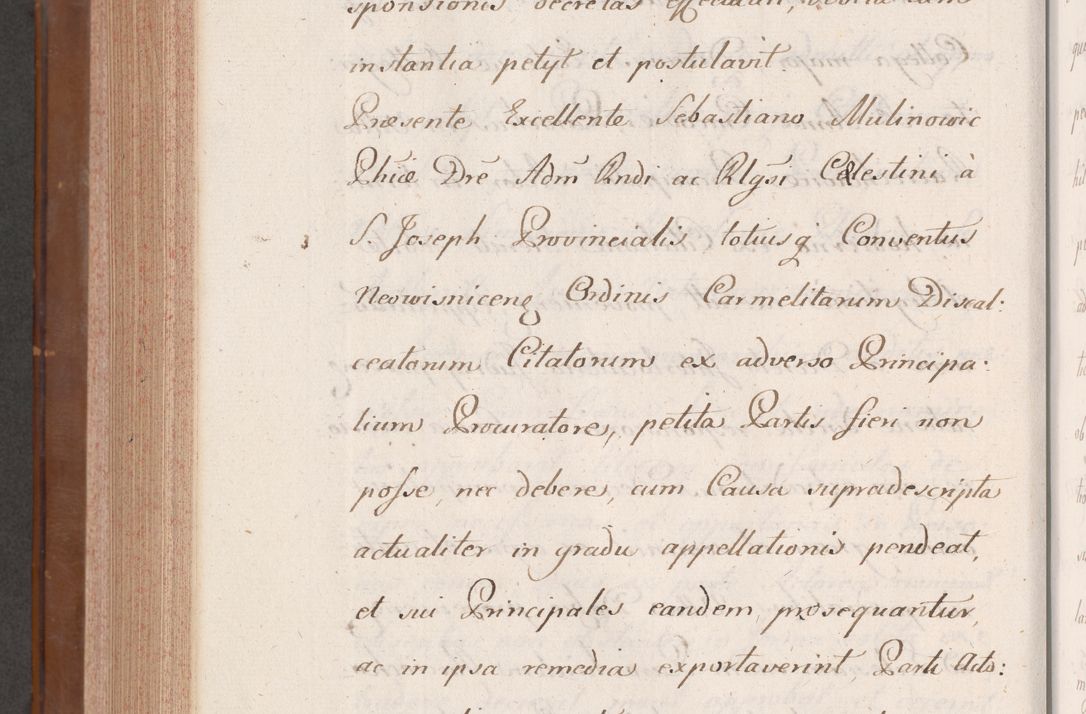 sponsionis decretas
instantia petyt et postulavit.
Præsente Excellente Sebastiano Mulinowic
Phiæ Dre Adm Rndi ac Rlgsi Celestini à
S. Joseph Provincialis totiusq Conventus
Neowisniceng Ordinis Carmelitarum Discal:
ceatorum Citatorum ex adverso Principa.
lium Procuratore, petita Partis fieri non
posse, nec debere, cum Causa supradescripta
actualiter in gradu appellationis pendeat,
et sui Principales eandem prosequantur,
ac in ipsa remedia exportaverint Parti Acto: